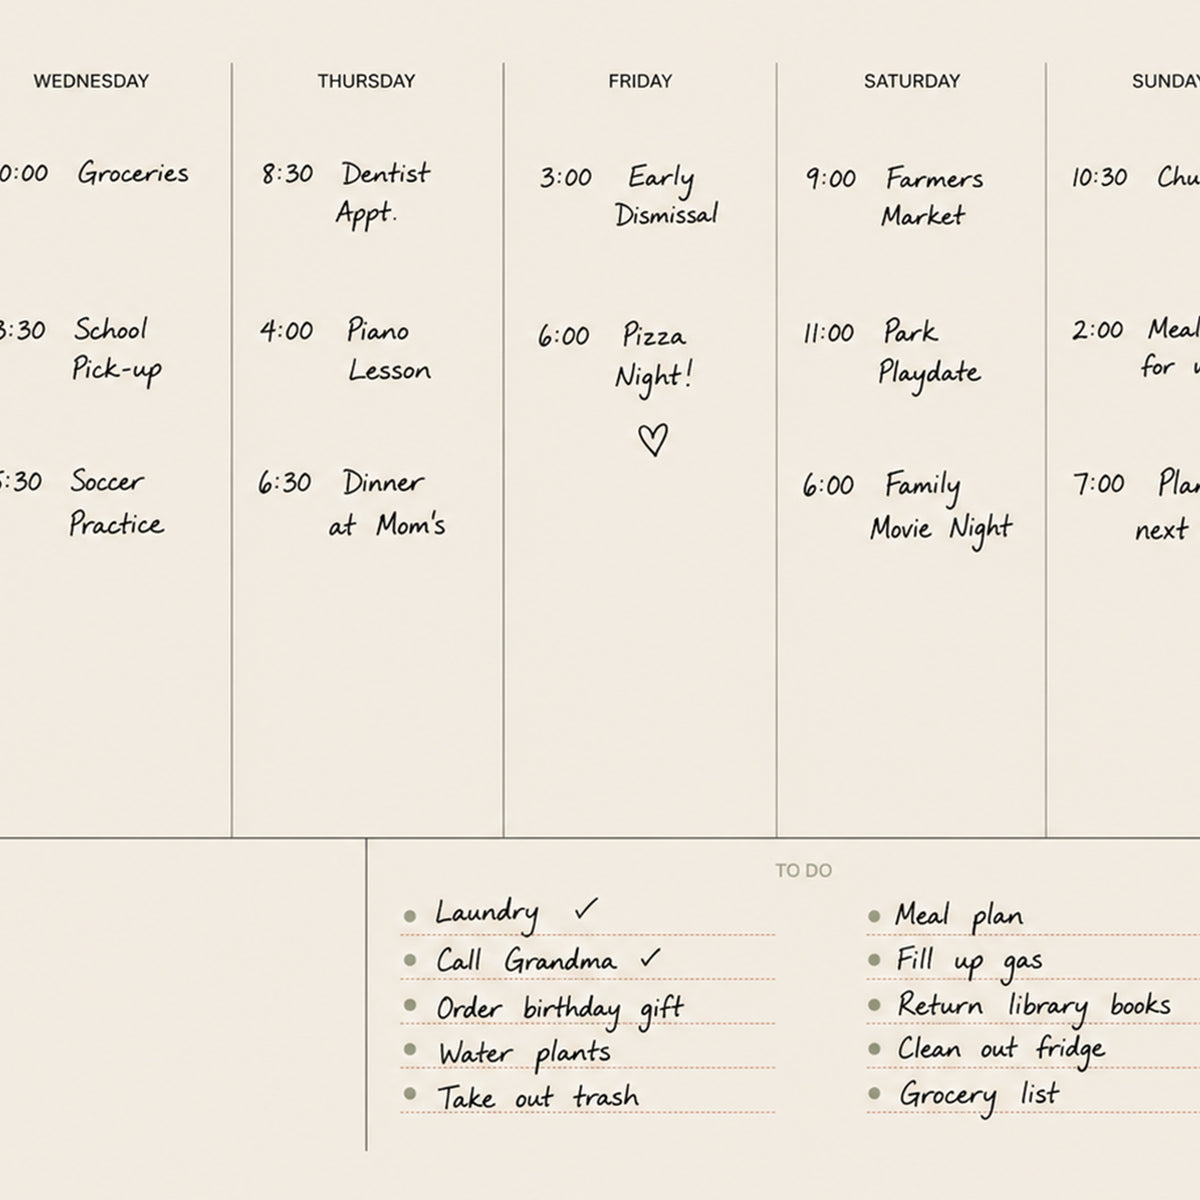 WEDNESDAY
Groceries
School
Pick-up
Soccer
Practice
THURSDAY
8:30 Dentist
Appt.
4:00 Piano
Lesson
6:30 Dinner
at Mom's
FRIDAY
3:00 Early
Dismissal
6:00 Pizza
Night!
SATURDAY
9:00 Farmers
Market
11:00 Park
Playdate
6:00 Family
Movie Night
10:30
2:00 Meal
for
7:00
next
TO DO
Laundry ✓
Call Grandma ✓
Order birthday gift
Water plants
Take out trash
Meal plan
Fill up gas
Return library books
Clean out fridge
Grocery list